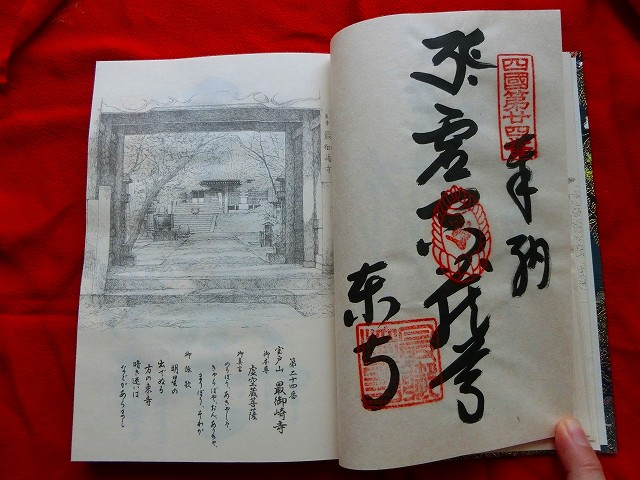 四國第廿四番
奉納
虚空蔵尊
東寺
最御崎寺
第二十四番
室戸山 最御崎寺
御本尊
虚空蔵菩薩
御真言
のうぼう、あきゃしゃ、
きゃらばや、おん、ありきゃ、
まりぼり、そわか
御詠歌
明星の
出でぬる
方の東寺
暗き迷いは
などかあらまし